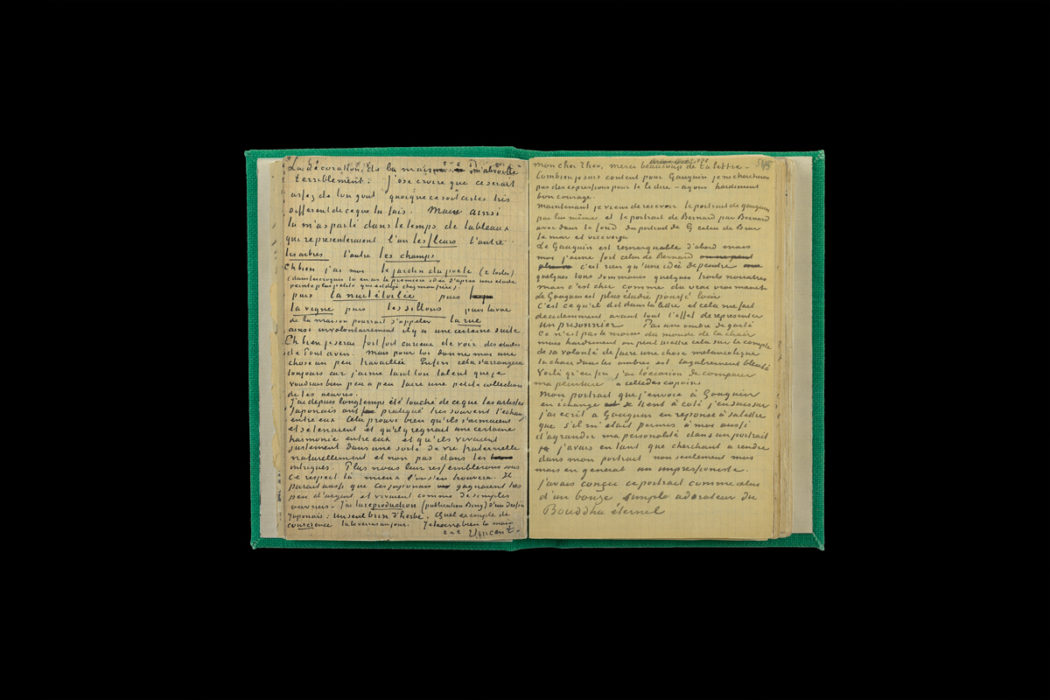 La décoration, Etc la maison m'absorbe
terriblement. J'ose croire que ce serait
assez de ton gout quoique ce soit certes très
différent de ce que tu fais. Mais ainsi
tu m'as parlé dans le temps de tableaux
qui représenteraient l'un les fleurs l'autre
les arbres l'autre les champs
Eh bien j'ai moi le jardin du poète (2 toiles)
(dans les croquis tu en as la première idée d'après une étude
peinte plus petite qui est déjà chez mon frère).
puis la nuit étoilée puis
la vigne puis les sillons puis la vue
de la maison pourrait s'appeler la rue
ainsi involontairement il y a une certaine suite
Eh bien je serai fort fort curieux de voir des études
de Pont aven. Mais pour toi donne moi une
chose un peu travaillée Enfin cela s'arrangera
toujours car j'aime tant ton talent que je
voudrais bien peu a peu faire une petite collection
de tes oeuvres.
J'ai depuis longtemps été touché de ce que les artistes
Japonais ont pratiqué très souvent l'échange
entre eux Cela prouve bien qu'ils s'aimaient
et se tenaient et qu'il y regnait une certaine
harmonie entre eux et qu'ils vivaient
justement dans une sorte de vie fraternelle
naturellement et non pas dans les
intrigues. Plus nous leur ressemblerons sous
ce respect là mieux l'on s'en trouvera. Il
parait aussi que ces japonais gagnaient très
peu d'argent et vivaient comme de simples
ouvriers. J'ai la reproduction (publication Bing) d'un dessin
Japonais. Un seul brin d'herbe. Quel exemple de
conscience tu le verras un jour. Je te serre bien la main
t. à t. Vincent.
mon cher Theo, merci beaucoup de ta lettre.
Combien je suis content pour Gauguin je ne cherche
pas des expressions pour te le dire – ayons hardiment
bon courage.
Maintenant je viens de recevoir le portrait de gauguin
par lui même et le portrait de Bernard par Bernard
avec dans le fond du portrait de G celui de Bern sur
le mur et viceversa
Le Gauguin est remarquable d'abord mais
moi j'aime fort celui de Bernard
c'est rien qu'une idée de peintre
quelques tons sommaires quelques traits noirâtres
mais c'est chic comme du vrai vrai manet
Le Gauguin est plus étudié poussé loin
C'est ce qu'il dit dans la lettre et cela me fait
décidemment avant tout l'effet de représenter
un prisonnier Pas une ombre de gaieté
Ce n'est pas le moins du monde de la chair
mais hardiment on peut mettre cela sur le compte
de sa volonté de faire une chose mélancolique
la chair dans les ombres est lugubrement bleutée
Voilà qu'enfin j'ai l'occasion de comparer
ma peinture a celle des copains
Mon portrait que j'envoie à Gauguin
en échange se tient à coté j'en suis sur
j'ai ecrit a Gauguin en reponse à sa lettre
que s'il m'était permis à moi aussi
d'agrandir ma personalité dans un portrait
j'avais en tant que cherchant a rendre
dans mon portrait non seulement moi
mais en general un impressioniste
j'avais conçu ce portrait comme celui
d'un bonze simple adorateur du
Bouddha éternel